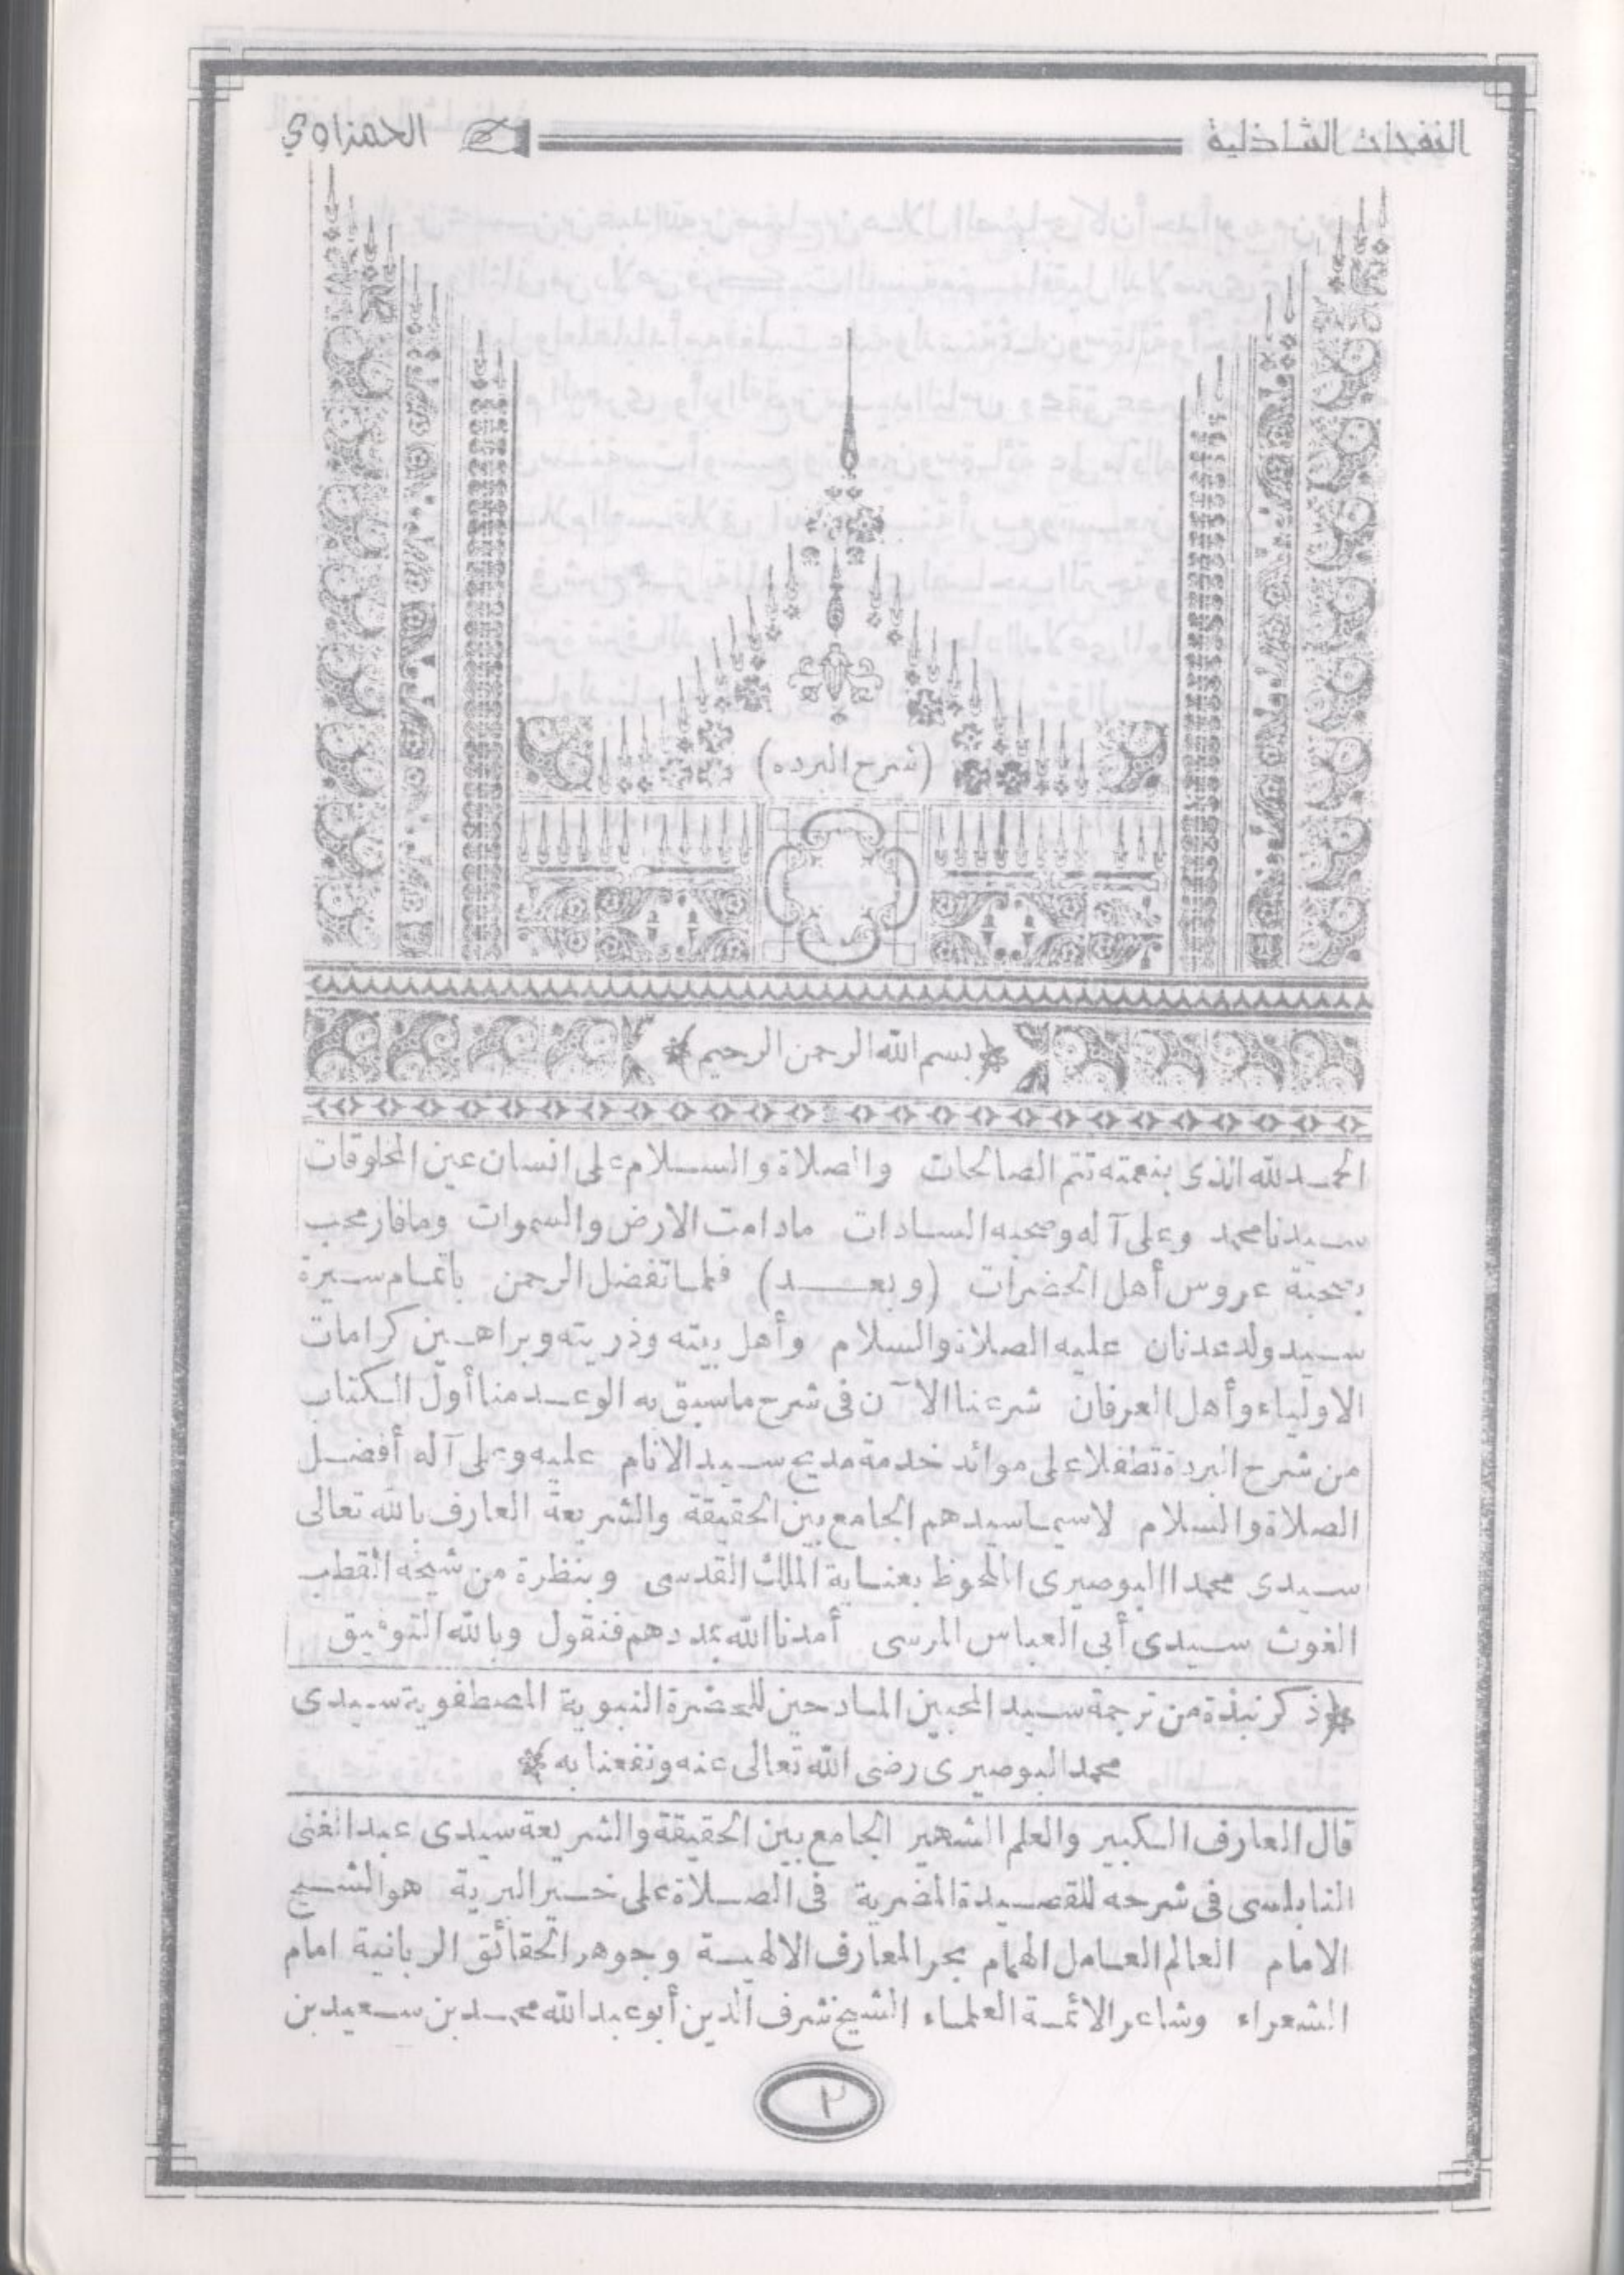 النفحات الشاذلية
الحمزاوي
(شرح البرده)
﴿بسم الله الرحمن الرحيم﴾
الحمد لله الذى بنعمته تتم الصالحات والصلاة والسلام على انسان عين المخلوقات
سيدنا محمد وعلى آله وصحبه السادات مادامت الارض والسموات ومافاز محب
بصحبة عروس أهل الحضرات (وبعد) فلما تفضل الرحمن باتمام سيرة
سيد ولد عدنان عليه الصلاة والسلام وأهل بيته وذريته وبراهين كرامات
الاولياء وأهل العرفان شرعنا الآن فى شرح ماسبق به الوعد منا أول الكتاب
من شرح البردة تطفلا على موائد خدمة مديح سيد الانام عليه وعلى آله أفضل
الصلاة والسلام لاسيما سيدهم الجامع بين الحقيقة والشريعة العارف بالله تعالى
سيدى محمد البوصيرى الملحوظ بعناية الملك القدسى وبنظرة من شيخه القطب
الغوث سيدى أبى العباس المرسى أمدنا الله بمددهم فنقول وبالله التوفيق
﴿ذكر نبذة من ترجمة سيد المحبين المادحين للحضرة النبوية المصطفوية سيدى
محمد البوصيرى رضى الله تعالى عنه ونفعنا به﴾
قال العارف الكبير والعلم الشهير الجامع بين الحقيقة والشريعة سيدى عبد الغنى
النابلسى فى شرحه للقصيدة المضرية فى الصلاة على خير البرية هو الشيخ
الامام العالم العامل الهمام بحر المعارف الالهية وجوهر الحقائق الربانية امام
الشعراء وشاعر الائمة العلماء الشيخ شرف الدين أبو عبد الله محمد بن سعيد بن
٢